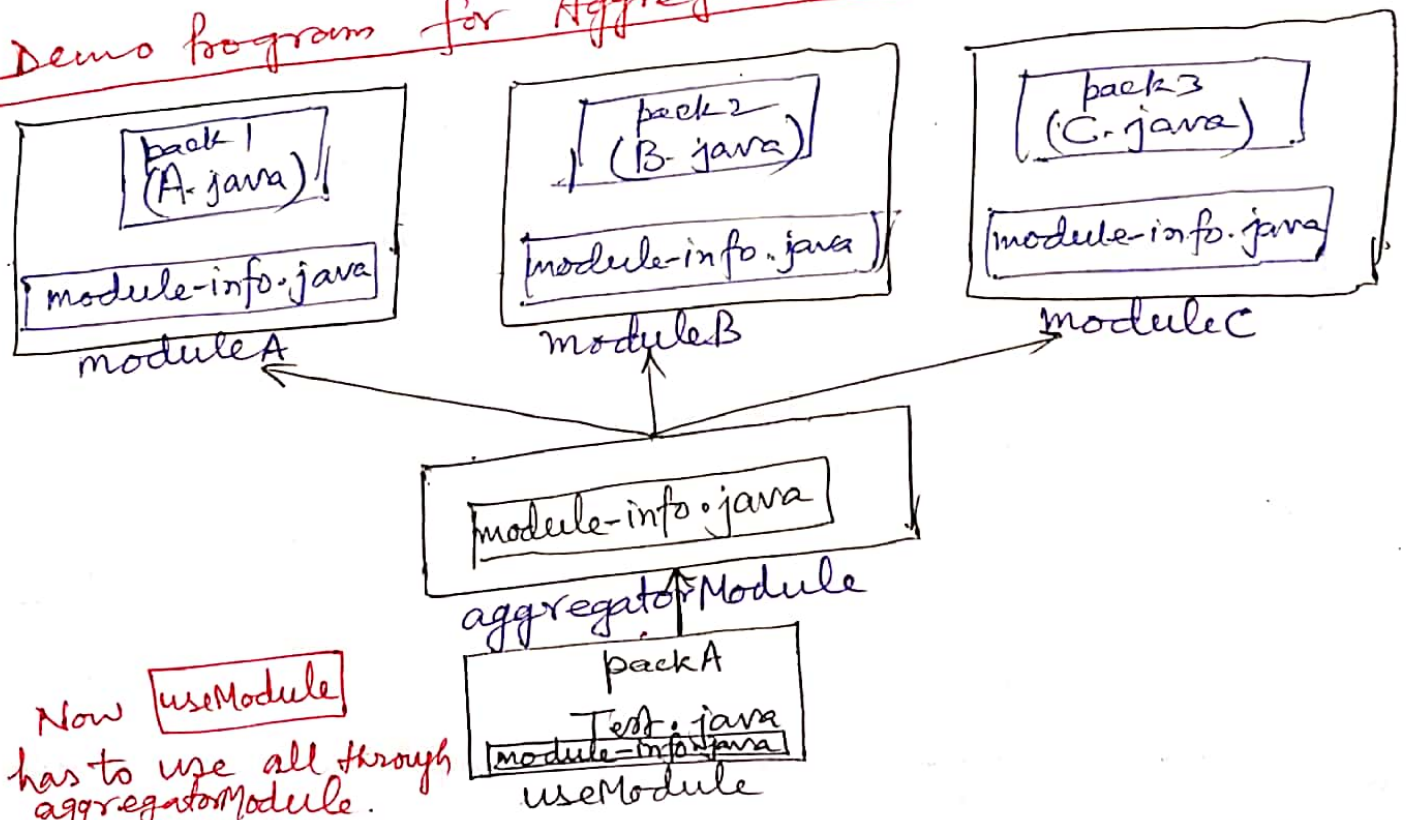 Demo Programs for Aggreg
pack1
(A.java)
module-info.java
moduleA
pack2
(B.java)
module-info.java
moduleB
pack3
(C.java)
module-info.java
moduleC
module-info.java
aggregatorModule
packA
Test.java
module-info.java
useModule
Now useModule
has to use all through
aggregatorModule.